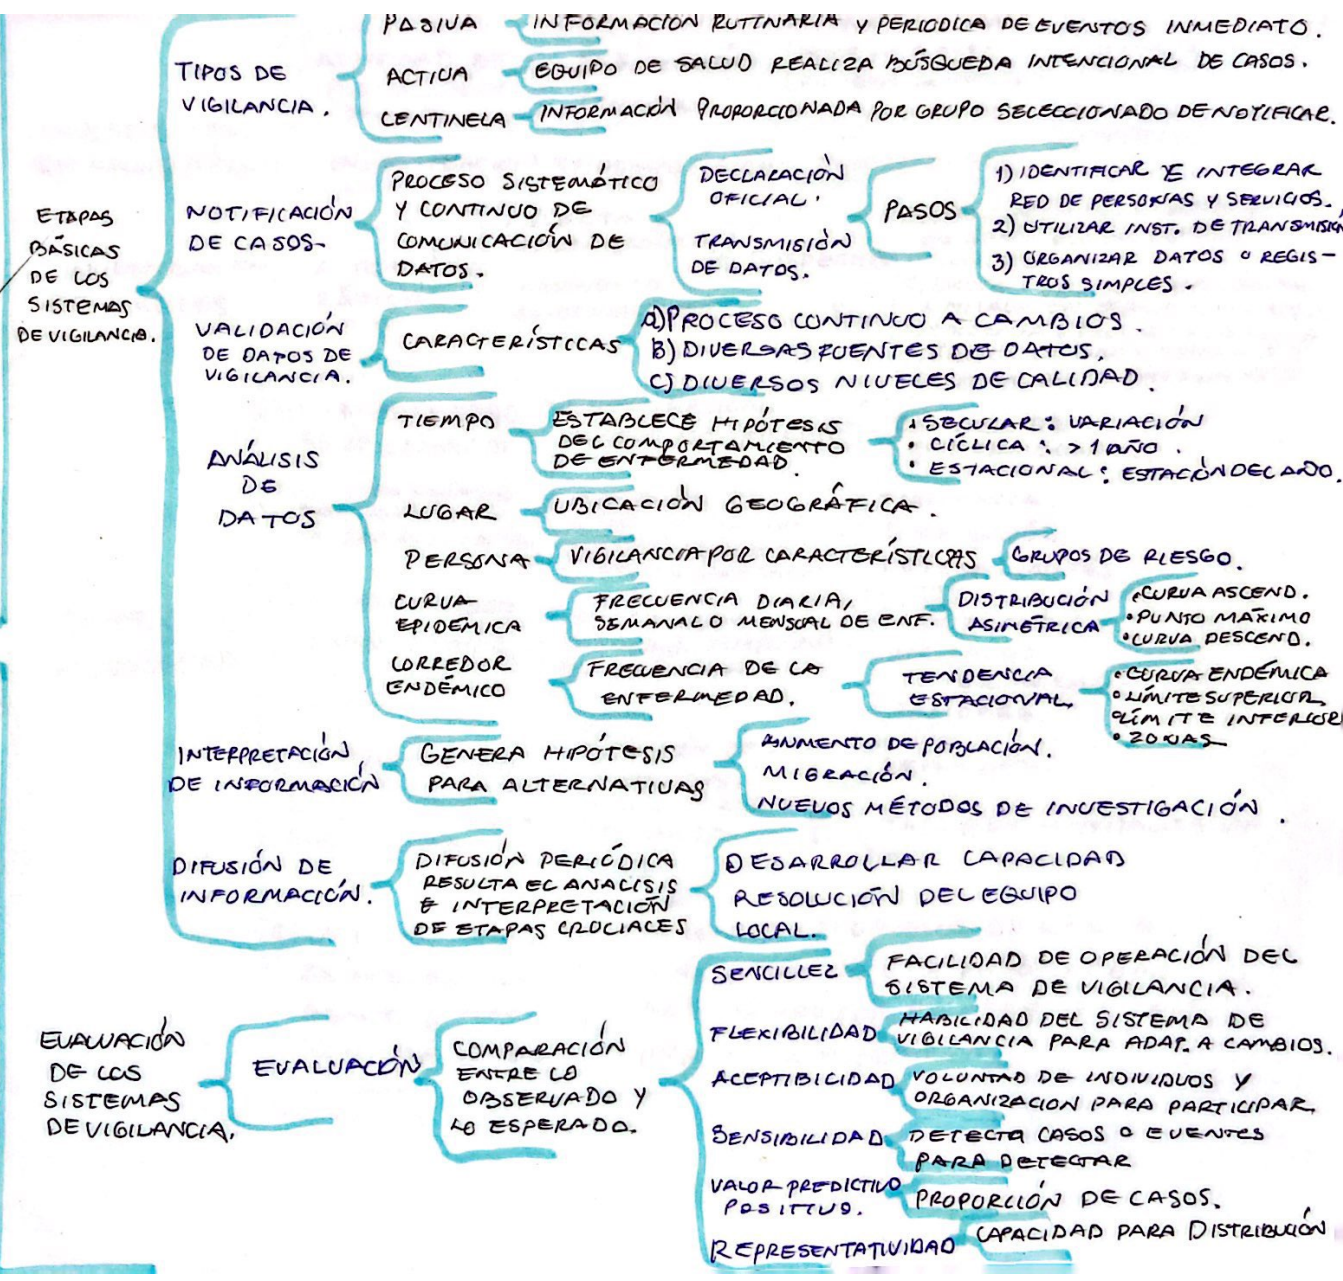 ETAPAS
BÁSICAS
DE LOS
SISTEMAS
DE VIGILANCIA.
TIPOS DE
VIGILANCIA.
PASIVA
INFORMACIÓN RUTINARIA Y PERIODICA DE EVENTOS INMEDIATO.
ACTIVA
EQUIPO DE SALUD REALIZA BÚSQUEDA INTENCIONAL DE CASOS.
CENTINELA
INFORMACIÓN PROPORCIONADA POR GRUPO SELECCIONADO DE NOTIFICAR.
NOTIFICACIÓN
DE CASOS-
PROCESO SISTEMÁTICO
Y CONTINUO DE
COMUNICACIÓN DE
DATOS.
DECLARACIÓN
OFICIAL.
TRANSMISIÓN
DE DATOS.
PASOS
1) IDENTIFICAR E INTEGRAR
RED DE PERSONAS Y SERVICIOS.
2) UTILIZAR INST. DE TRANSMISIÓN
3) ORGANIZAR DATOS O REGIS-
TROS SIMPLES.
VALIDACIÓN
DE DATOS DE
VIGILANCIA.
CARACTERÍSTICAS
A) PROCESO CONTINUO A CAMBIOS.
B) DIVERSAS FUENTES DE DATOS.
C) DIVERSOS NIVELES DE CALIDAD.
ANÁLISIS
DE
DATOS
TIEMPO
ESTABLECE HIPÓTESIS
DEL COMPORTAMIENTO
DE ENFERMEDAD.
• SECULAR: VARIACIÓN
• CÍCLICA: >1 AÑO.
• ESTACIONAL: ESTACIÓN DEL AÑO.
LUGAR
UBICACIÓN GEOGRÁFICA.
PERSONA
VIGILANCIA POR CARACTERÍSTICAS
GRUPOS DE RIESGO.
CURVA
EPIDÉMICA
FRECUENCIA DIARIA,
SEMANAL O MENSUAL DE ENF.
DISTRIBUCIÓN
ASIMÉTRICA
• CURVA ASCEND.
• PUNTO MÁXIMO
• CURVA DESCEND.
CORREDOR
ENDÉMICO
FRECUENCIA DE LA
ENFERMEDAD.
TENDENCIA
ESTACIONAL
• CURVA ENDÉMICA
• LÍMITE SUPERIOR
• LÍMITE INFERIOR
• ZONAS
INTERPRETACIÓN
DE INFORMACIÓN
GENERA HIPÓTESIS
PARA ALTERNATIVAS
AUMENTO DE POBLACIÓN.
MIGRACIÓN.
NUEVOS MÉTODOS DE INVESTIGACIÓN.
DIFUSIÓN DE
INFORMACIÓN.
DIFUSIÓN PERIÓDICA
RESULTA EL ANALISIS
E INTERPRETACIÓN
DE ETAPAS CRUCIALES
DESARROLLAR CAPACIDAD
RESOLUCIÓN DEL EQUIPO
LOCAL.
EVALUACIÓN
DE LOS
SISTEMAS
DE VIGILANCIA.
EVALUACIÓN
COMPARACIÓN
ENTRE LO
OBSERVADO Y
LO ESPERADO.
SENCILLEZ
FACILIDAD DE OPERACIÓN DEL
SISTEMA DE VIGILANCIA.
FLEXIBILIDAD
HABILIDAD DEL SISTEMA DE
VIGILANCIA PARA ADAP. A CAMBIOS.
ACEPTIBILIDAD
VOLUNTAD DE INDIVIDUOS Y
ORGANIZACION PARA PARTICIPAR.
SENSIBILIDAD
DETECTA CASOS O EVENTOS
PARA DETECTAR
VALOR PREDICTIVO
POSITIVO.
PROPORCIÓN DE CASOS.
REPRESENTATIVIDAD
CAPACIDAD PARA DISTRIBUCIÓN